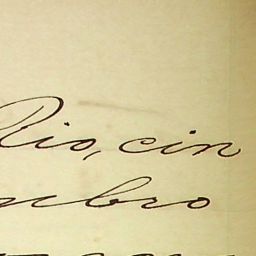 Rio, cin
mbro